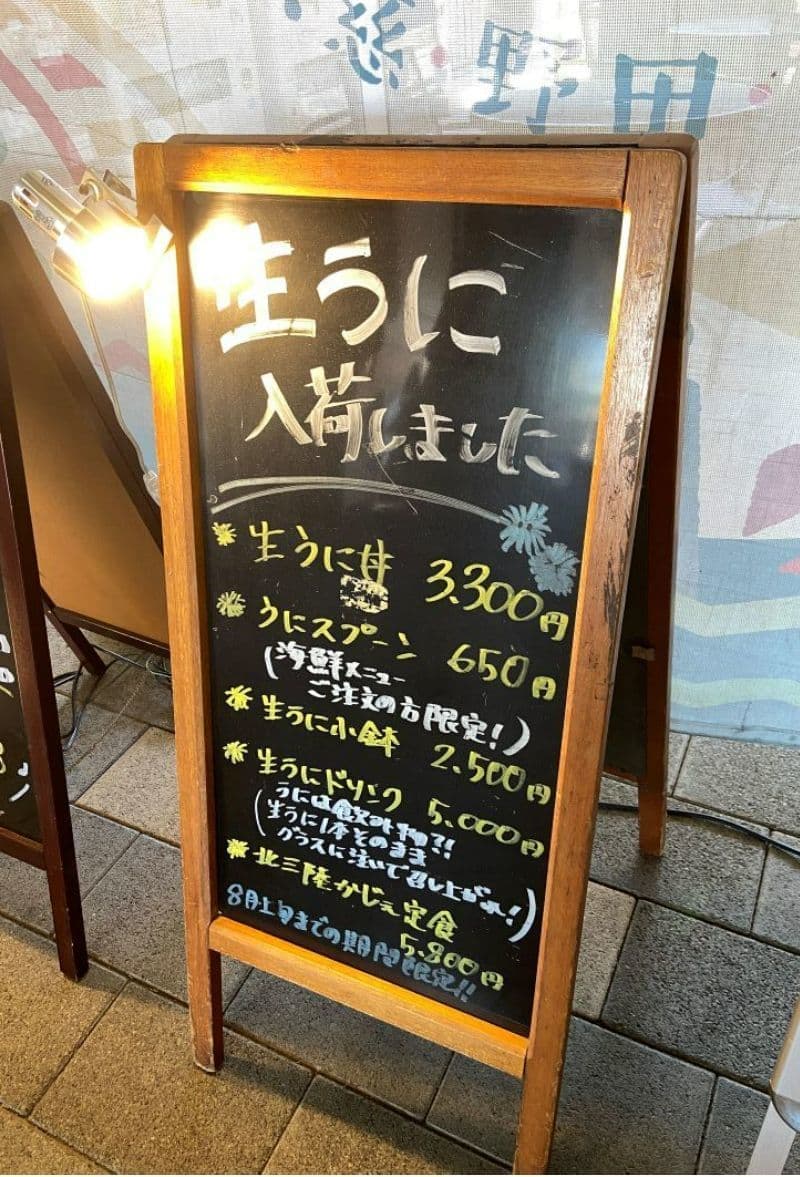 野田
生うに
入荷しました
生うに丼 3,300円
うにスプーン 650円
(海鮮メニュー
ご注文の方限定!)
生うに小鉢 2,500円
生うにドリンク 5,000円
(うには飲み物?!
生うに1本そのまま
グラスに注いで召し上がれ!)
北三陸かじぇ定食
5,800円
8月上旬までの期間限定!!